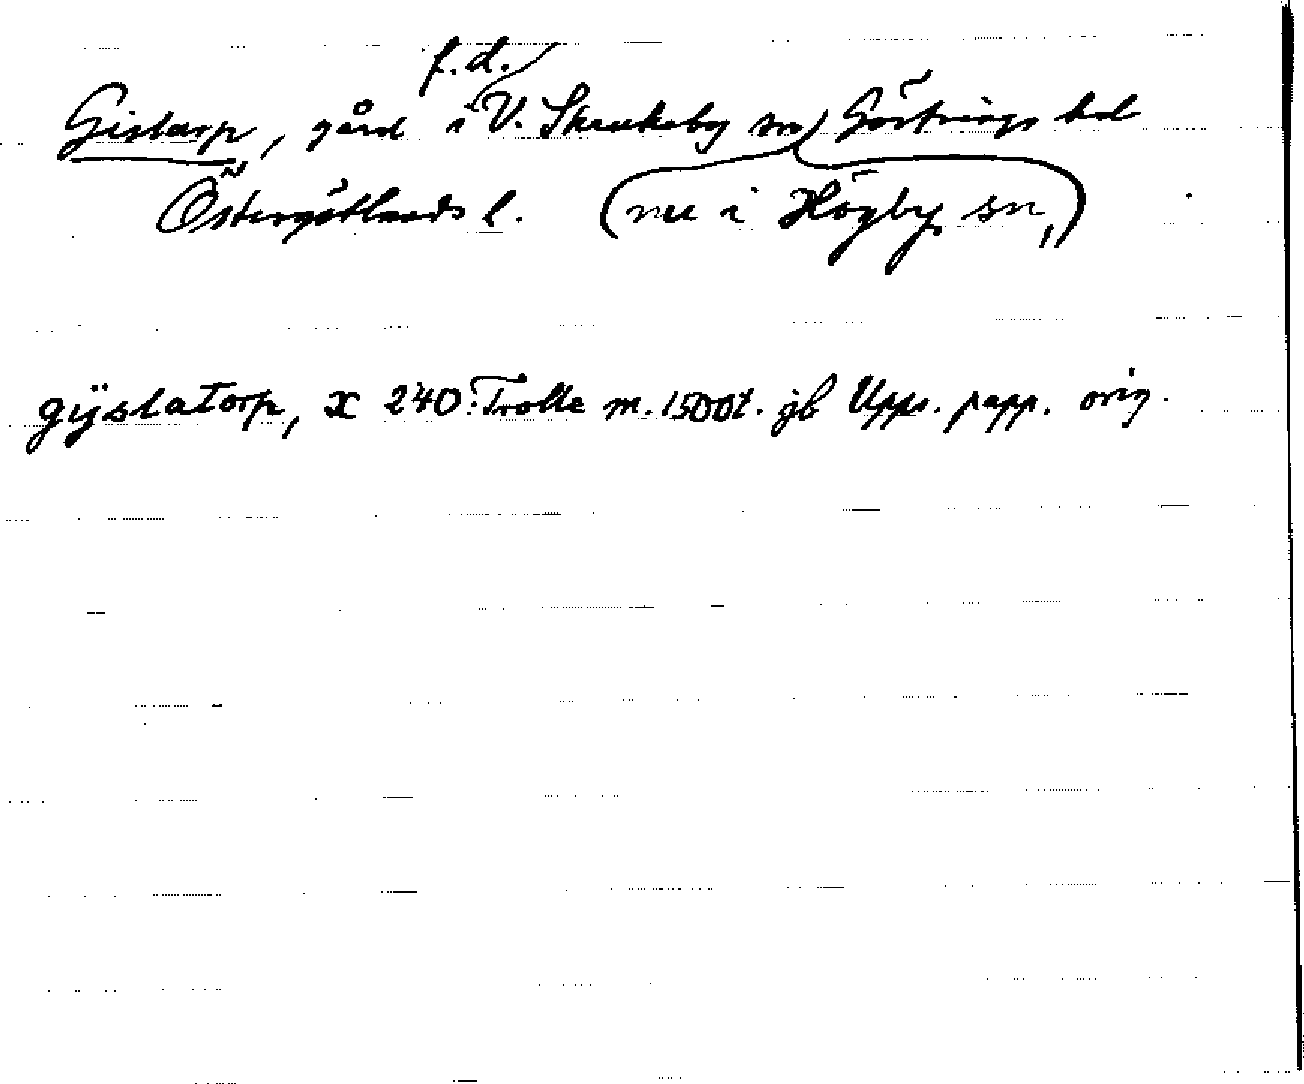 f.d.
Gistarp, gård i V. Skrukeby sn Göstrings hd
Östergötlands l. (nu i Högby sn,)
gÿslatorp, x 240: Trolle m. 1500t. jb Upps. papp. orig.